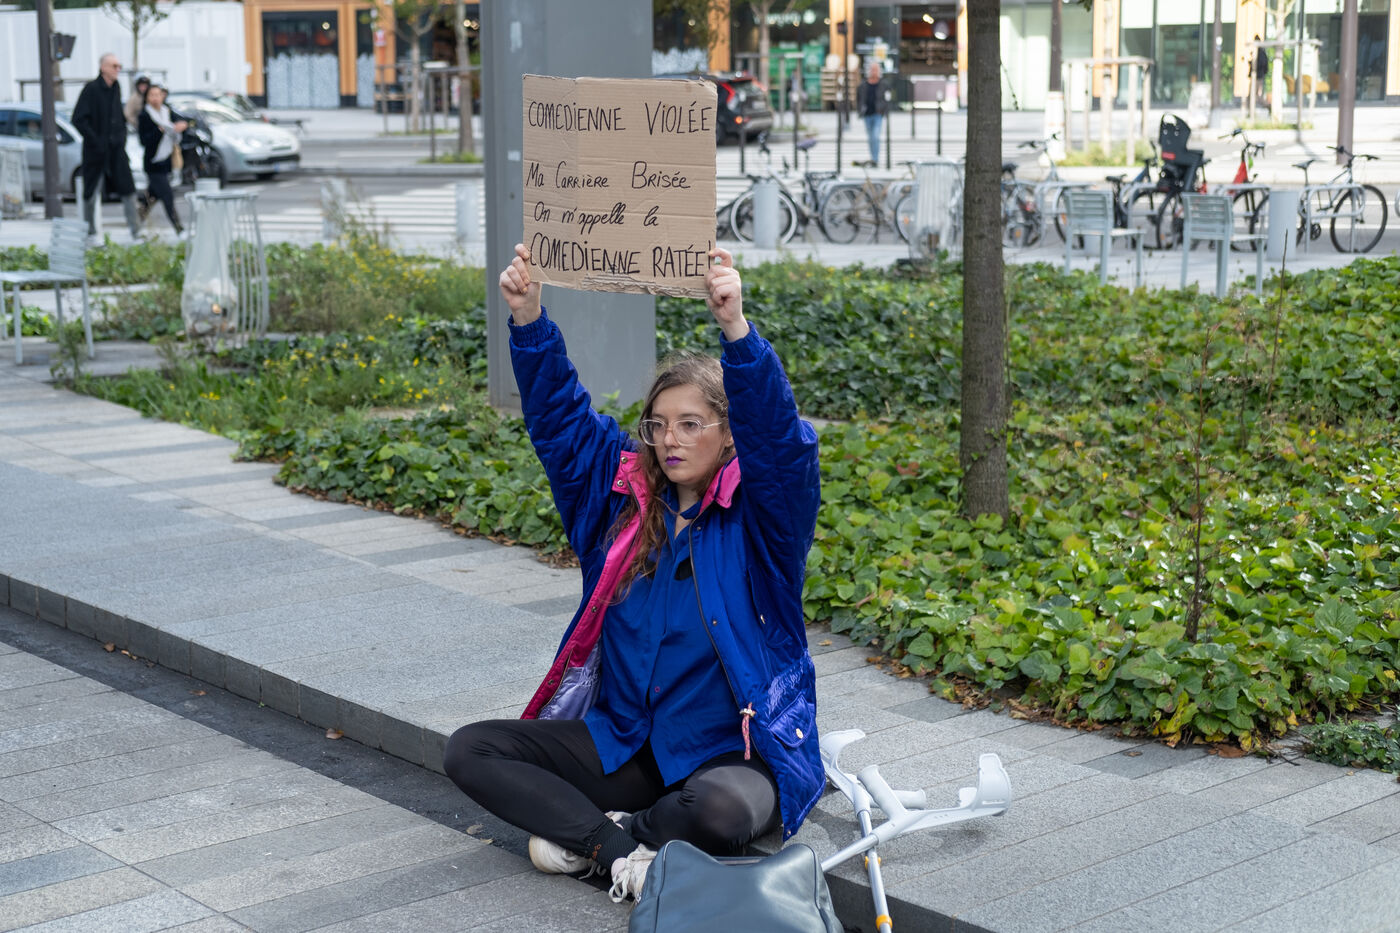 COMEDIENNE VIOLÉE
Ma Carrière Brisée
On m'appelle la
COMEDIENNE RATÉE!